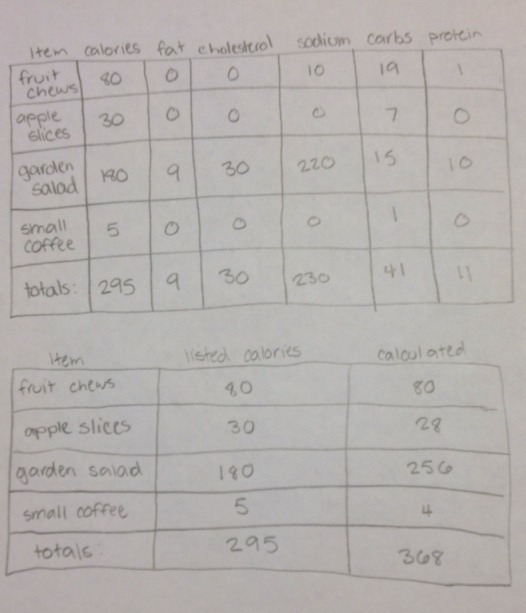 Item calories fat cholesterol sodium carbs protein
fruit chews 80 0 0 10 19 1
apple slices 30 0 0 0 7 0
garden salad 180 9 30 220 15 10
small coffee 5 0 0 0 1 0
totals: 295 9 30 230 41 11
Item listed calories calculated
fruit chews 80 80
apple slices 30 28
garden salad 180 256
small coffee 5 4
totals: 295 368